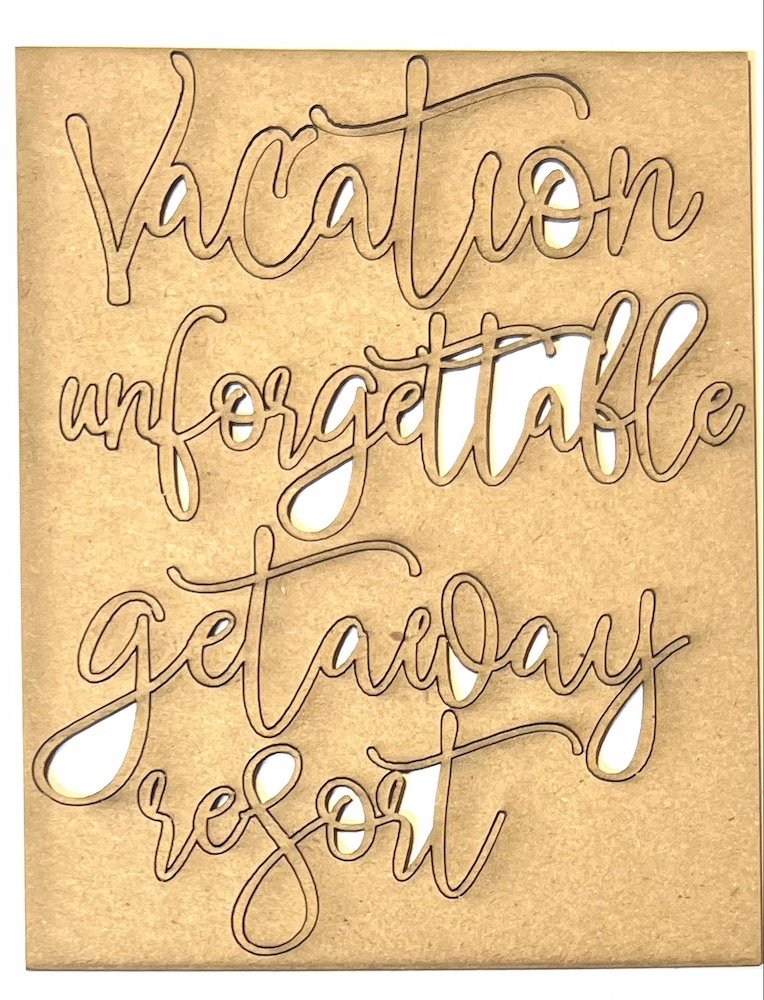 Vacation
unforgettable
getaway
resort